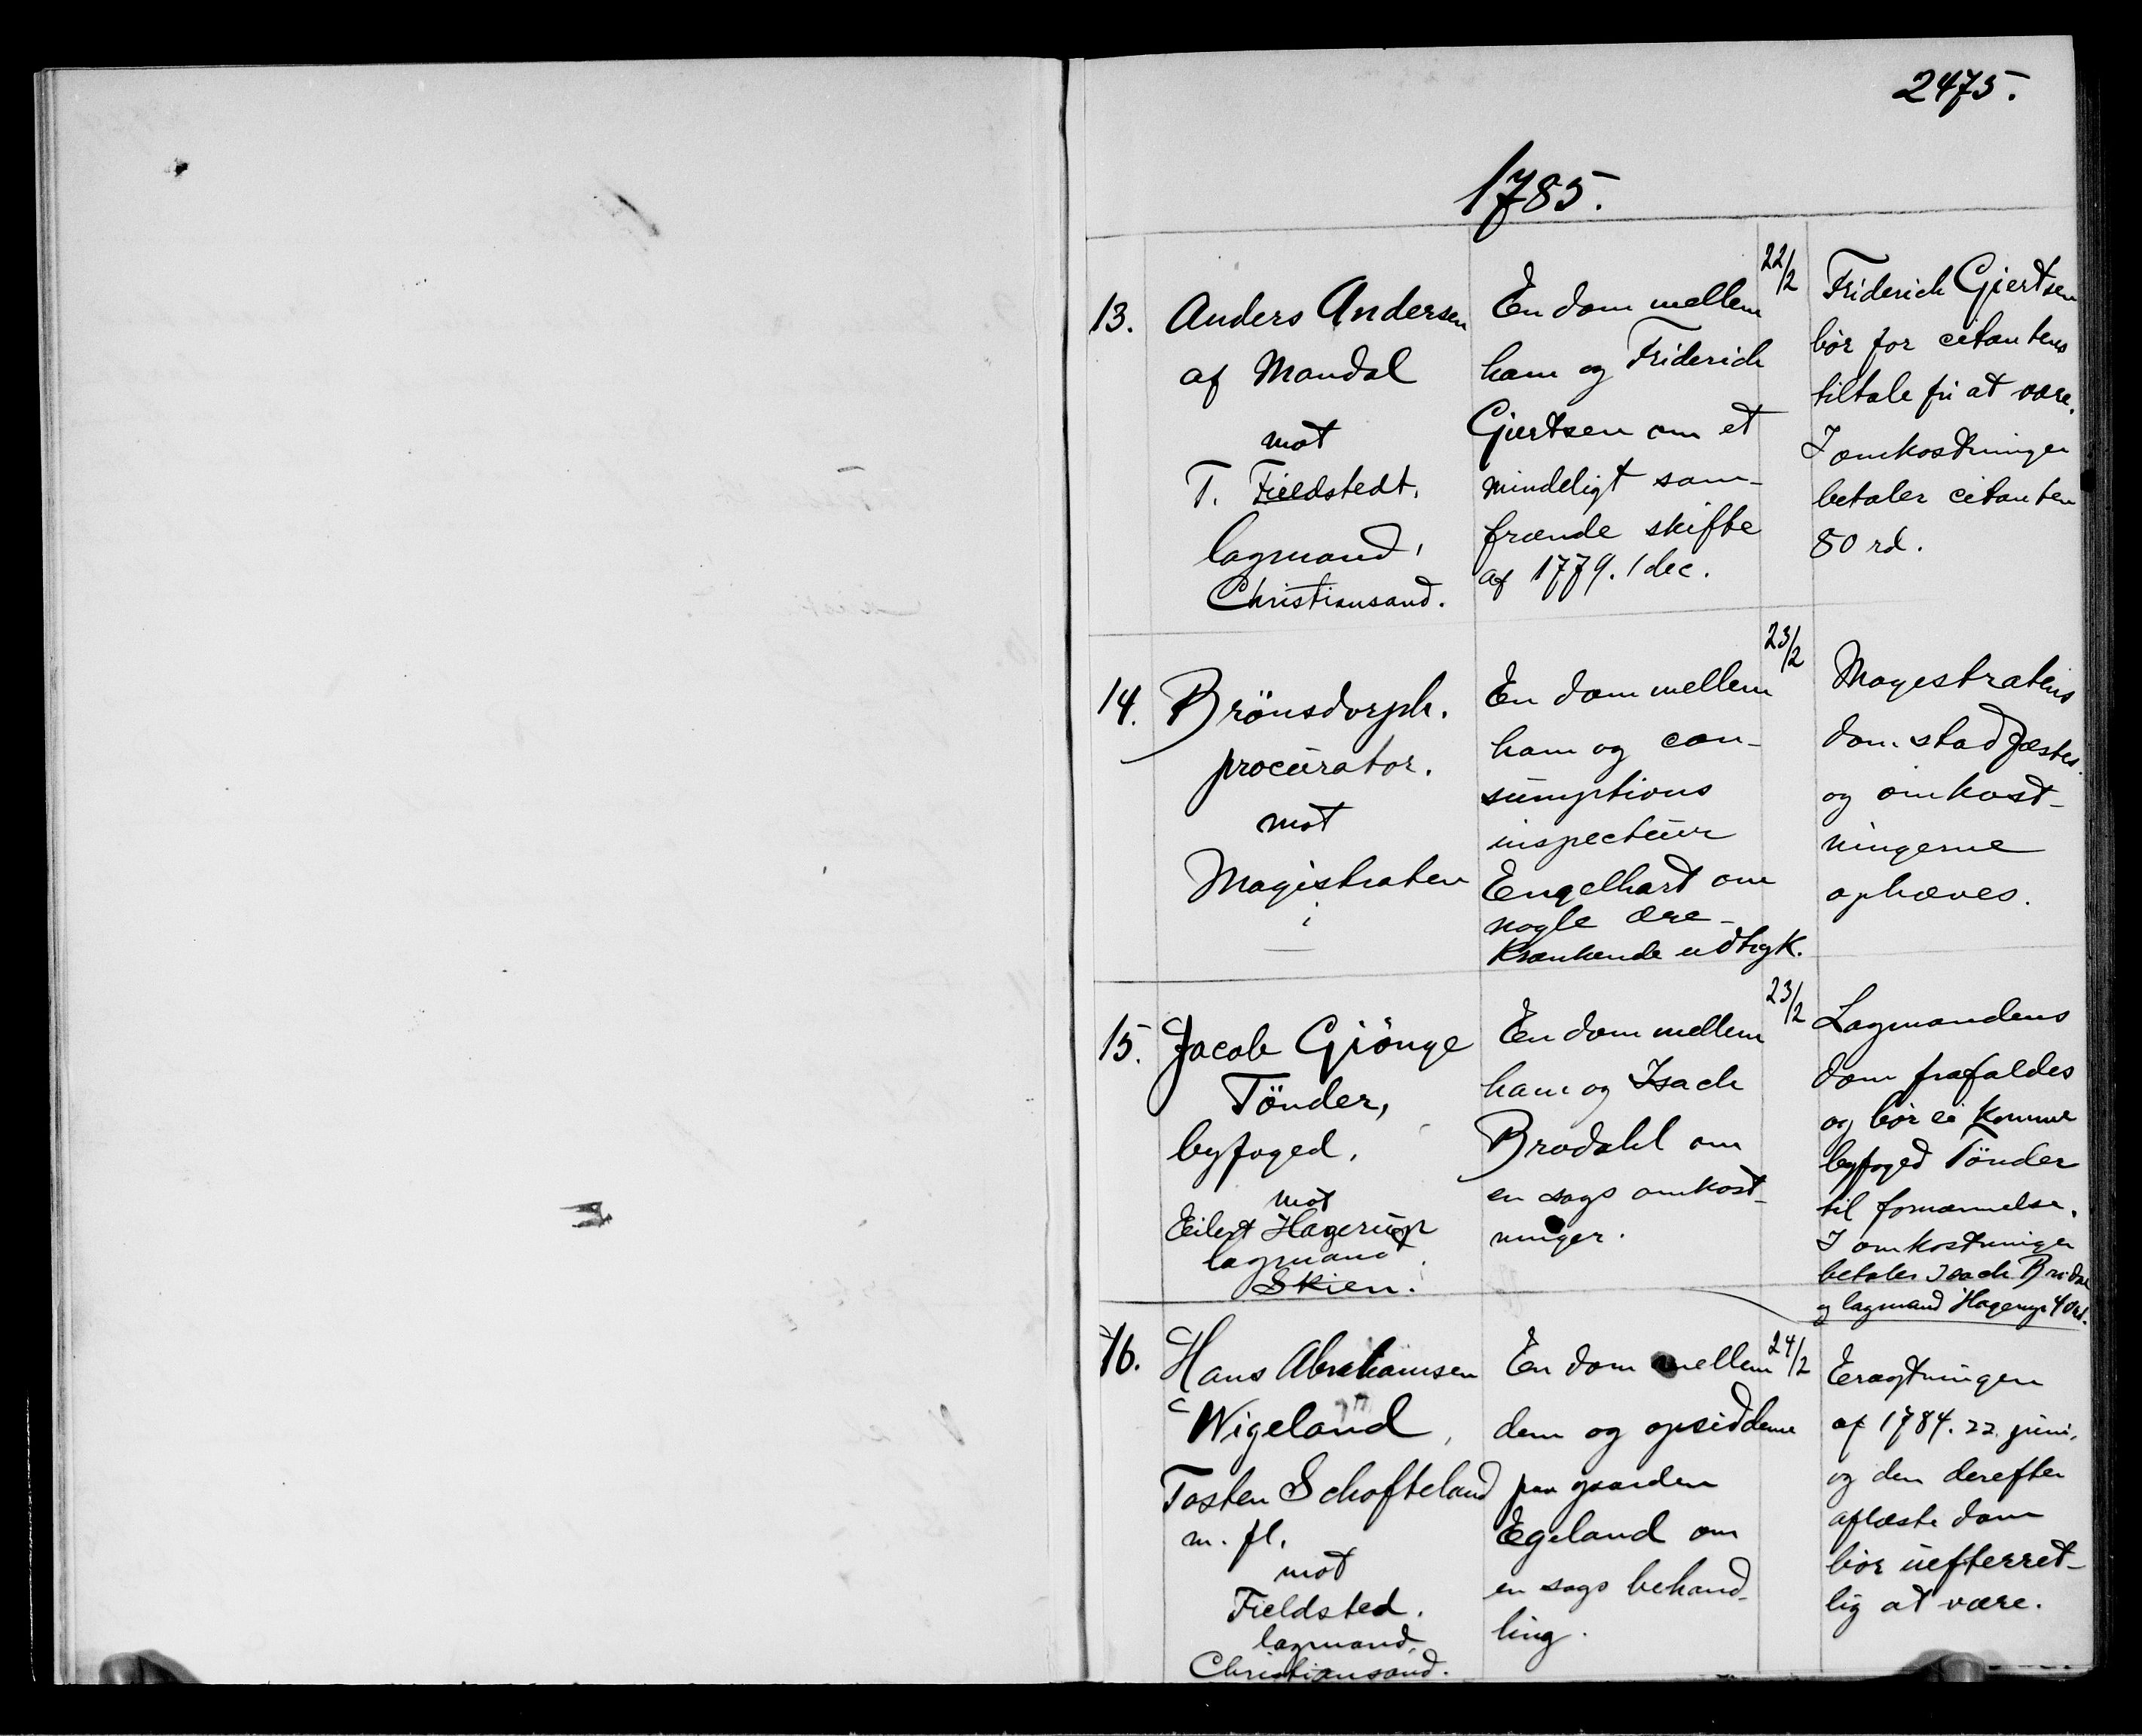 2475.
1785.
13.
Anders Andersen
af Mandal
mot
T. Fieldstedt,
lagmand,
Christiansand.
En dom mellem
ham og Friderich
Giertsen om et
mindeligt sam-
frænde skifte
af 1779. 1 dec.
22/2
Friderich Giertsen
bør for citantens
tiltale fri at være.
I omkostninger
betaler citanten
80 rd.
14.
Brönsdorph.
procurator.
mot
Magistraten
i
—
En dom mellem
ham og con-
sumptions
inspecteur
Engelhart om
nogle ære-
krænkende udtryk.
23/2
Magestratens
dom stadfæstes.
og omkost-
ningerne
ophæves.
15.
Jacob Giönge
Tönder,
byfoged,
mot
Eilert Hagerup
lagmand.
Skien.
En dom mellem
ham og Isach
Brodahl om
en sags omkost-
ninger.
23/2
Lagmandens
dom frafaldes
og bør ei komme
byfoged Tönder
til fornærmelse.
I omkostninger
betaler Isach Brodal
og lagmand Hagerup 40 rd.
16.
Hans Abrahamsen
Wigeland,
Tosten Schofteland
m. fl.
mot
Fieldsted.
lagmand,
Christiansand.
En dom mellem
dem og opsidderne
paa gaarden
Egeland om
en sags behand-
ling.
24/2
Eragtningen
af 1784. 22 juni,
og den derefter
aflæste dom
bør uefterret-
lig at være.